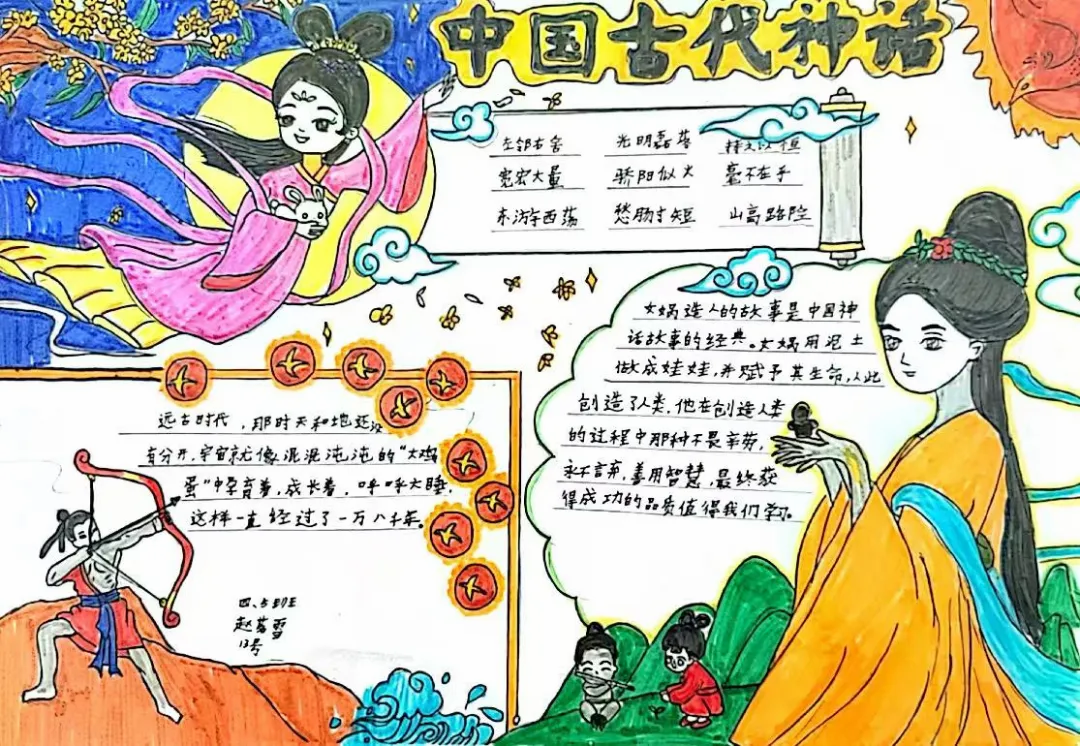 中国古代神话
左邻右舍 光明磊落 持之以恒
宽宏大量 骄阳似火 毫不在乎
东游西荡 愁肠寸短 山高路险
女娲造人的故事是中国神
话故事的经典。女娲用泥土
做成娃娃,并赋予其生命,从此
创造了人类,他在创造人类
的过程中那种不畏辛劳,
永不言弃,善用智慧,最终获
得成功的品质值得我们学习。
远古时代,那时天和地还没
有分开,宇宙就像混混沌沌的"大鸡
蛋"中孕育着,成长着,呼呼大睡,
这样一直经过了一万八千年。
四、5班
赵 雪
13号